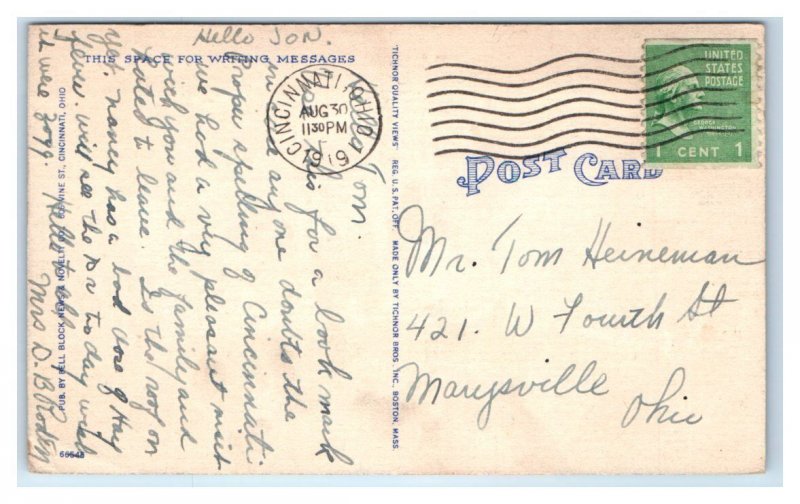 Hello Jon.
THIS SPACE FOR WRITING MESSAGES
Tom.
Use this for a book mark
in case any one doubts the
Proper spelling of Cincinnati
we had a very pleasant visit
with you and the family and
hated to leave. Is the roof on
yet. nancy has a bad dose of Hay
fever. will see the Dr today wish
it were you. Hello to all
Mrs D. B.
PUB. BY BELL BLOCK NEWS & NOVELTY CO., VINE ST., CINCINNATI, OHIO
66648
TICHNOR QUALITY VIEWS REG. U.S. PAT. OFF. MADE ONLY BY TICHNOR BROS. INC., BOSTON, MASS.
CINCINNATI, OHIO
AUG 30
1130 PM
UNITED
STATES
POSTAGE
GEORGE
WASHINGTON
1 CENT 1
POST CARD
Mr. Tom Heineman
421. W Fourth St
Marysville
Ohio